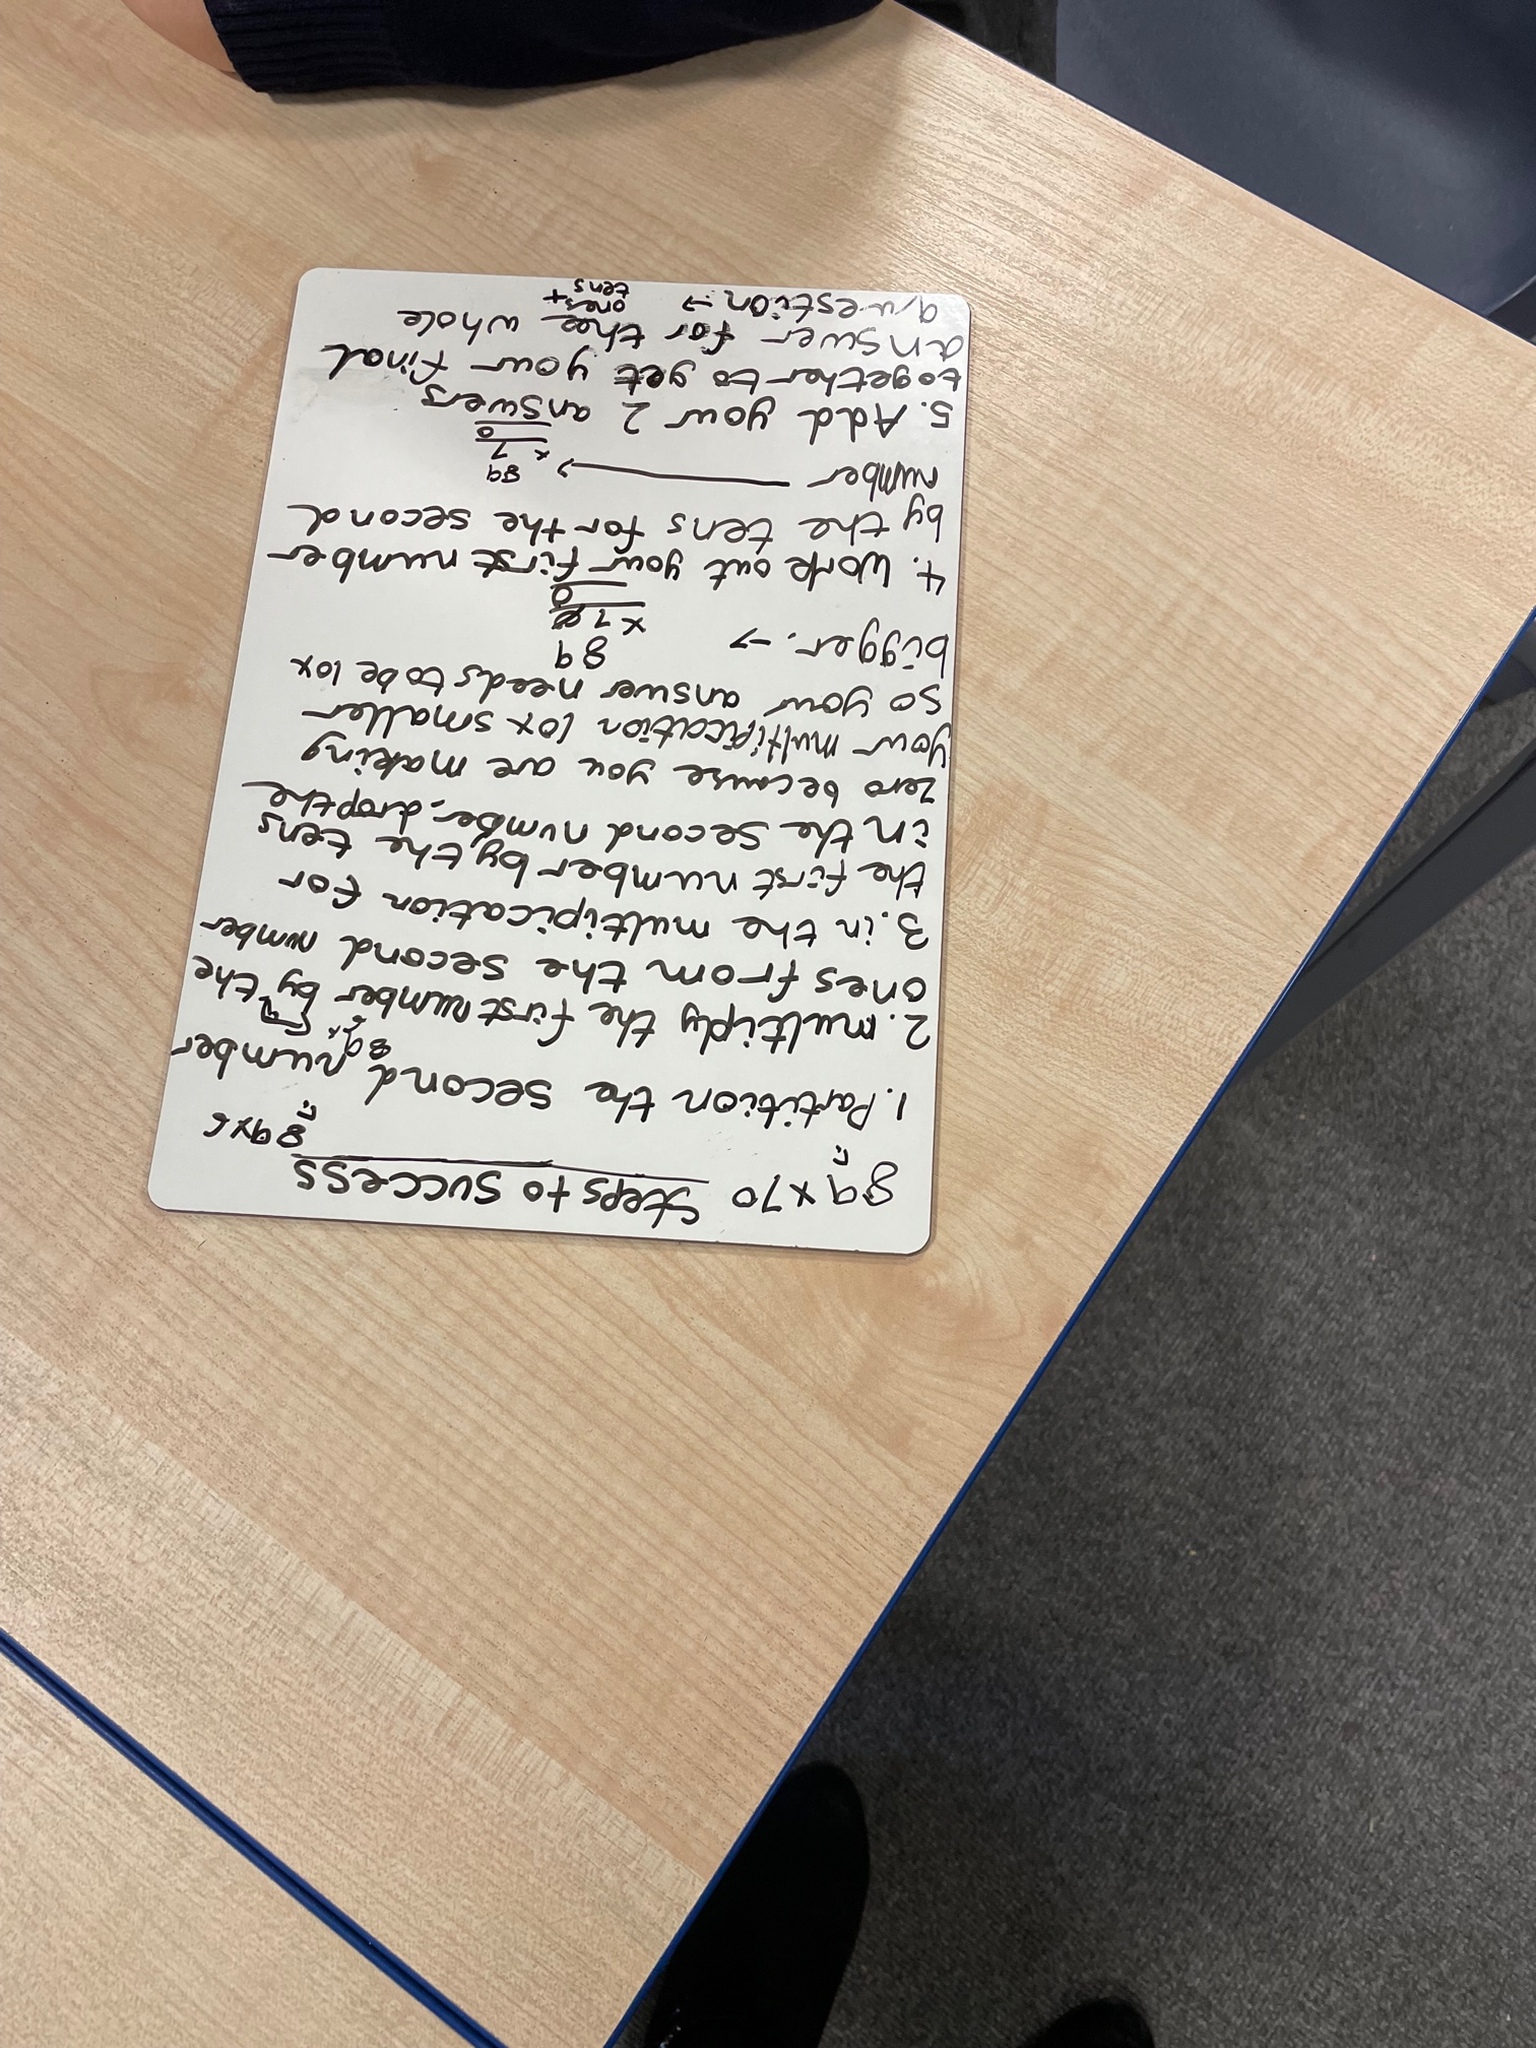 89 x 70 Steps to Success 89 x 6
1. Partition the second number
89
2. multiply the first number by the
ones from the second number
3. in the multipication for
the first number by the tens
in the second number, drop the
zero because you are making
your multiplication 10x smaller
so your answer needs to be 10x
bigger. → 89
x 7
0
4. Work out your first number
by the tens for the second
number → 89
x 7
0
5. Add your 2 answers
together to get your final
answer for thee whole
question → ones + tens